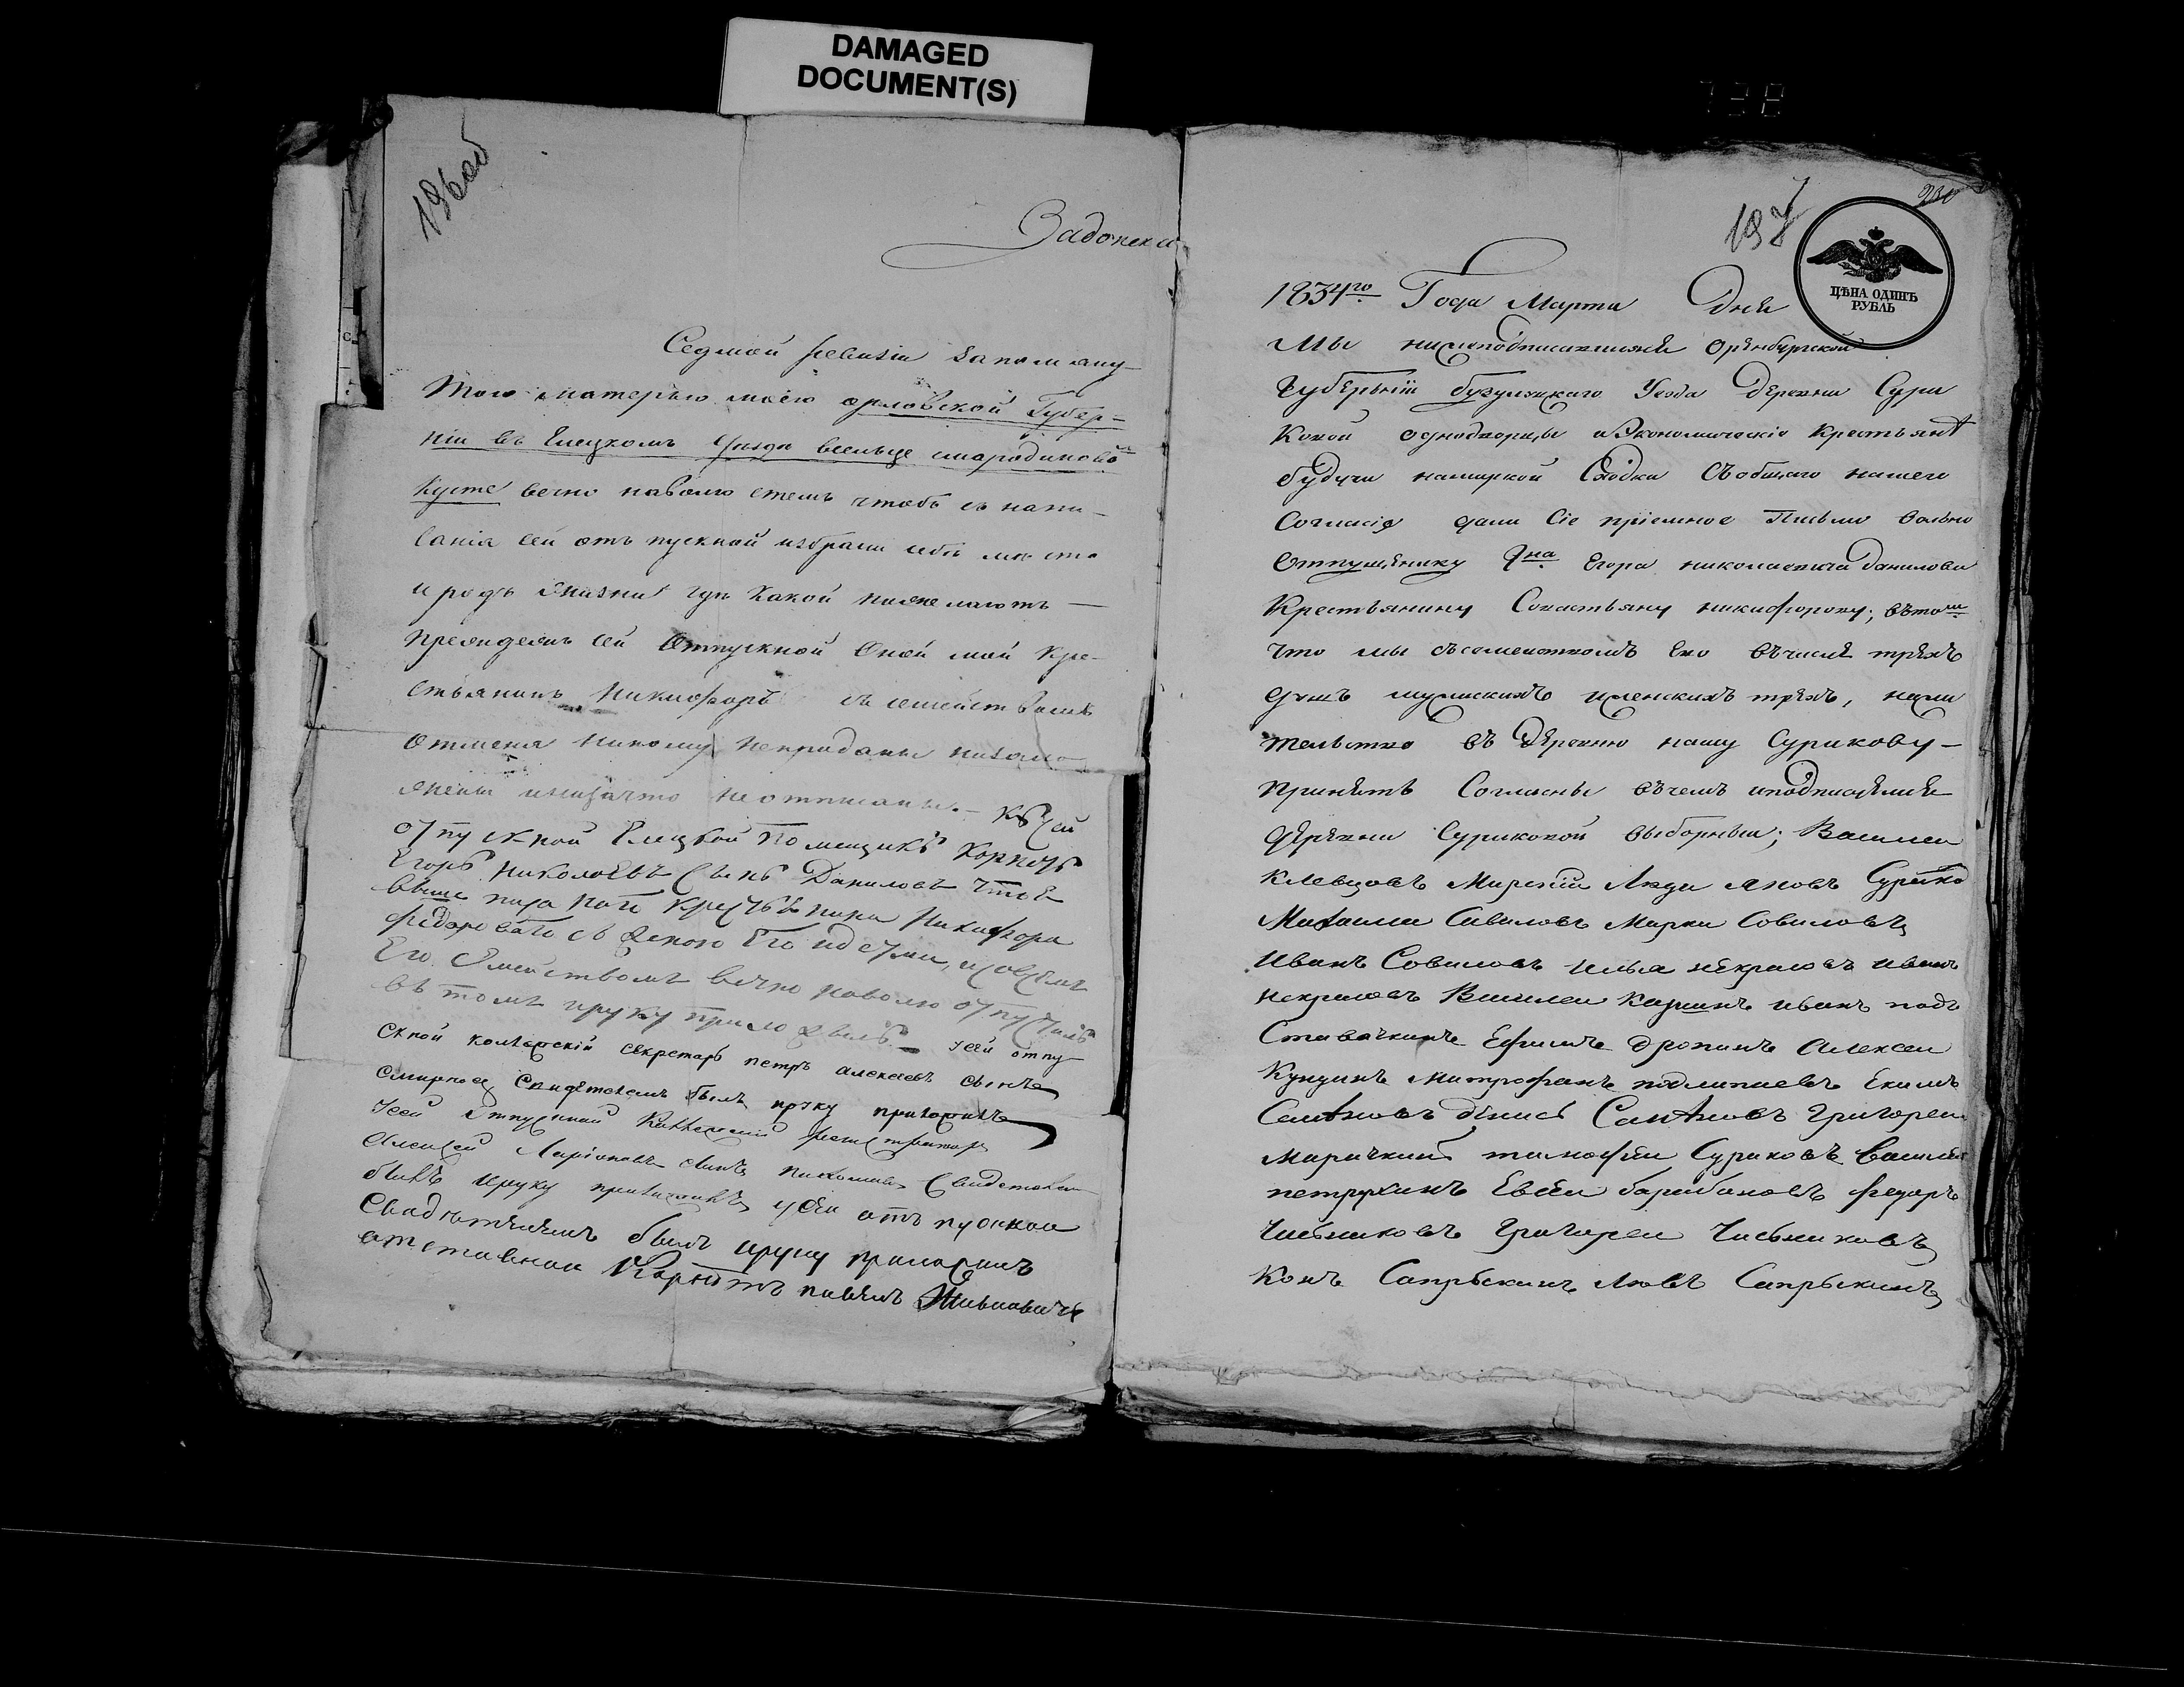 DAMAGED
DOCUMENT(S)
196об
Задонска
Седмой ревизіи запомяну
тою матерью моею орловской Губер-
ніи въ Елецкомъ Уезде всельце смародиновой
Кусте вечно наволю стемъ чтобъ
сей отъ пускной избрали себе место
и родъ жизни где какой пожелаютъ —
преждежъ сей Отпускной Оной мой Кре-
стьянинъ Никифоръ съ семействомъ
отменя никому непроданы низало
жены инизачто неотписаны. — Ксей
отпускной Елецкой Помещикъ Корнетъ
Егоръ Николоевъ Сынъ Даниловъ Что
выше Крестьенина Никифора
съ женою Его идетми, исовсемъ
Его Семействомъ вечно наволю отпустилъ
въ томъ ируку приложилъ — усей отпу
скной колежскій секретарь петръ алексеевъ сынъ
Смирновъ Свидетелемъ былъ ируку приложилъ
Усей Отпускной регистраторъ
Алексей Ларіоновъ сынъ Свидетелемъ
былъ ируку приложилъ усеи отъ пускнои
Свидетелемъ былъ ируку приложилъ
отставнои Корнетъ павелъ
197
ЦѢНА ОДИНЪ
РУБЛЬ
1834го Года Марта Дня
Мы нижеподписавшиеся Оренбургской
Губерніи бузулукскаго Уезда Деревни Сури
Ковой однодворцы иЭкономическіе Крестьяне
будучи намирской Сходки Съобщаго нашего
Согласія дали Сіе пріемное Письмо вольно
Отпущенику Гна Егора николаевича данилова
Крестьянину Савастьяну никифорову; втомъ
что мы съсемействомъ Его въчисле трехъ
душъ мужскихъ иженскихъ трехъ, нажи
тельство въ Деревню нашу Сурикову —
принять Согласны въчемъ иподписуемся
Деревни Суриковой выборный; Василеи
Клевцовъ Мирскіи Люди яковъ Сурико
Михаила Савиловъ Марки Совиловъ
Иванъ Совиловъ илья некрасовъ иванъ
некрасовъ Василеи иванъ подъ
Ставачкинъ Ефимъ дропинъ алексеи
Кундинъ митрофанъ Екимъ
Семѣновъ дѣнисъ Самѣновъ Григореи
тимофеи Суриковъ василеи
петрухинъ Евсеи барабановъ федоръ
Чиѣниковъ Григореи Чиѣниковъ
Конъ Сапрыкинъ Левъ Сапрыкинъ